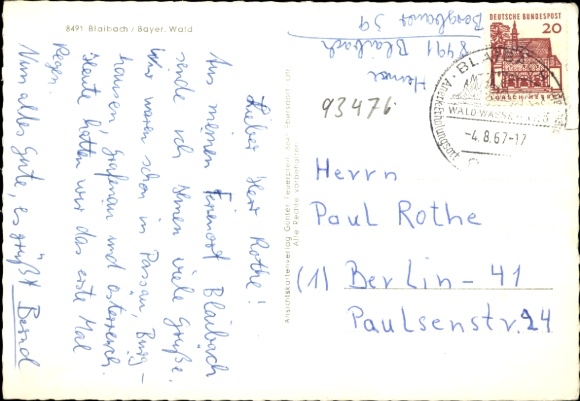 8491 Blaibach / Bayer. Wald
Lieber Herr Rothe!
Aus meinem Ferienort Blaibach
sende ich Ihnen viele Grüße.
Wir waren schon in Passau, Burg-
hausen, Grafenau und Österreich.
Heute hatten wir das erste Mal
Regen.
Nun alles Gute, es grüßt Bernd
8491 Blaibach
93476
Ansichtskartenverlag Günter
Alle Rechte vorbehalten
DEUTSCHE BUNDESPOST
20
WALD WASSER
-4.8.67-17
Herrn
Paul Rothe
(1) Berlin-41
Paulsenstr. 24